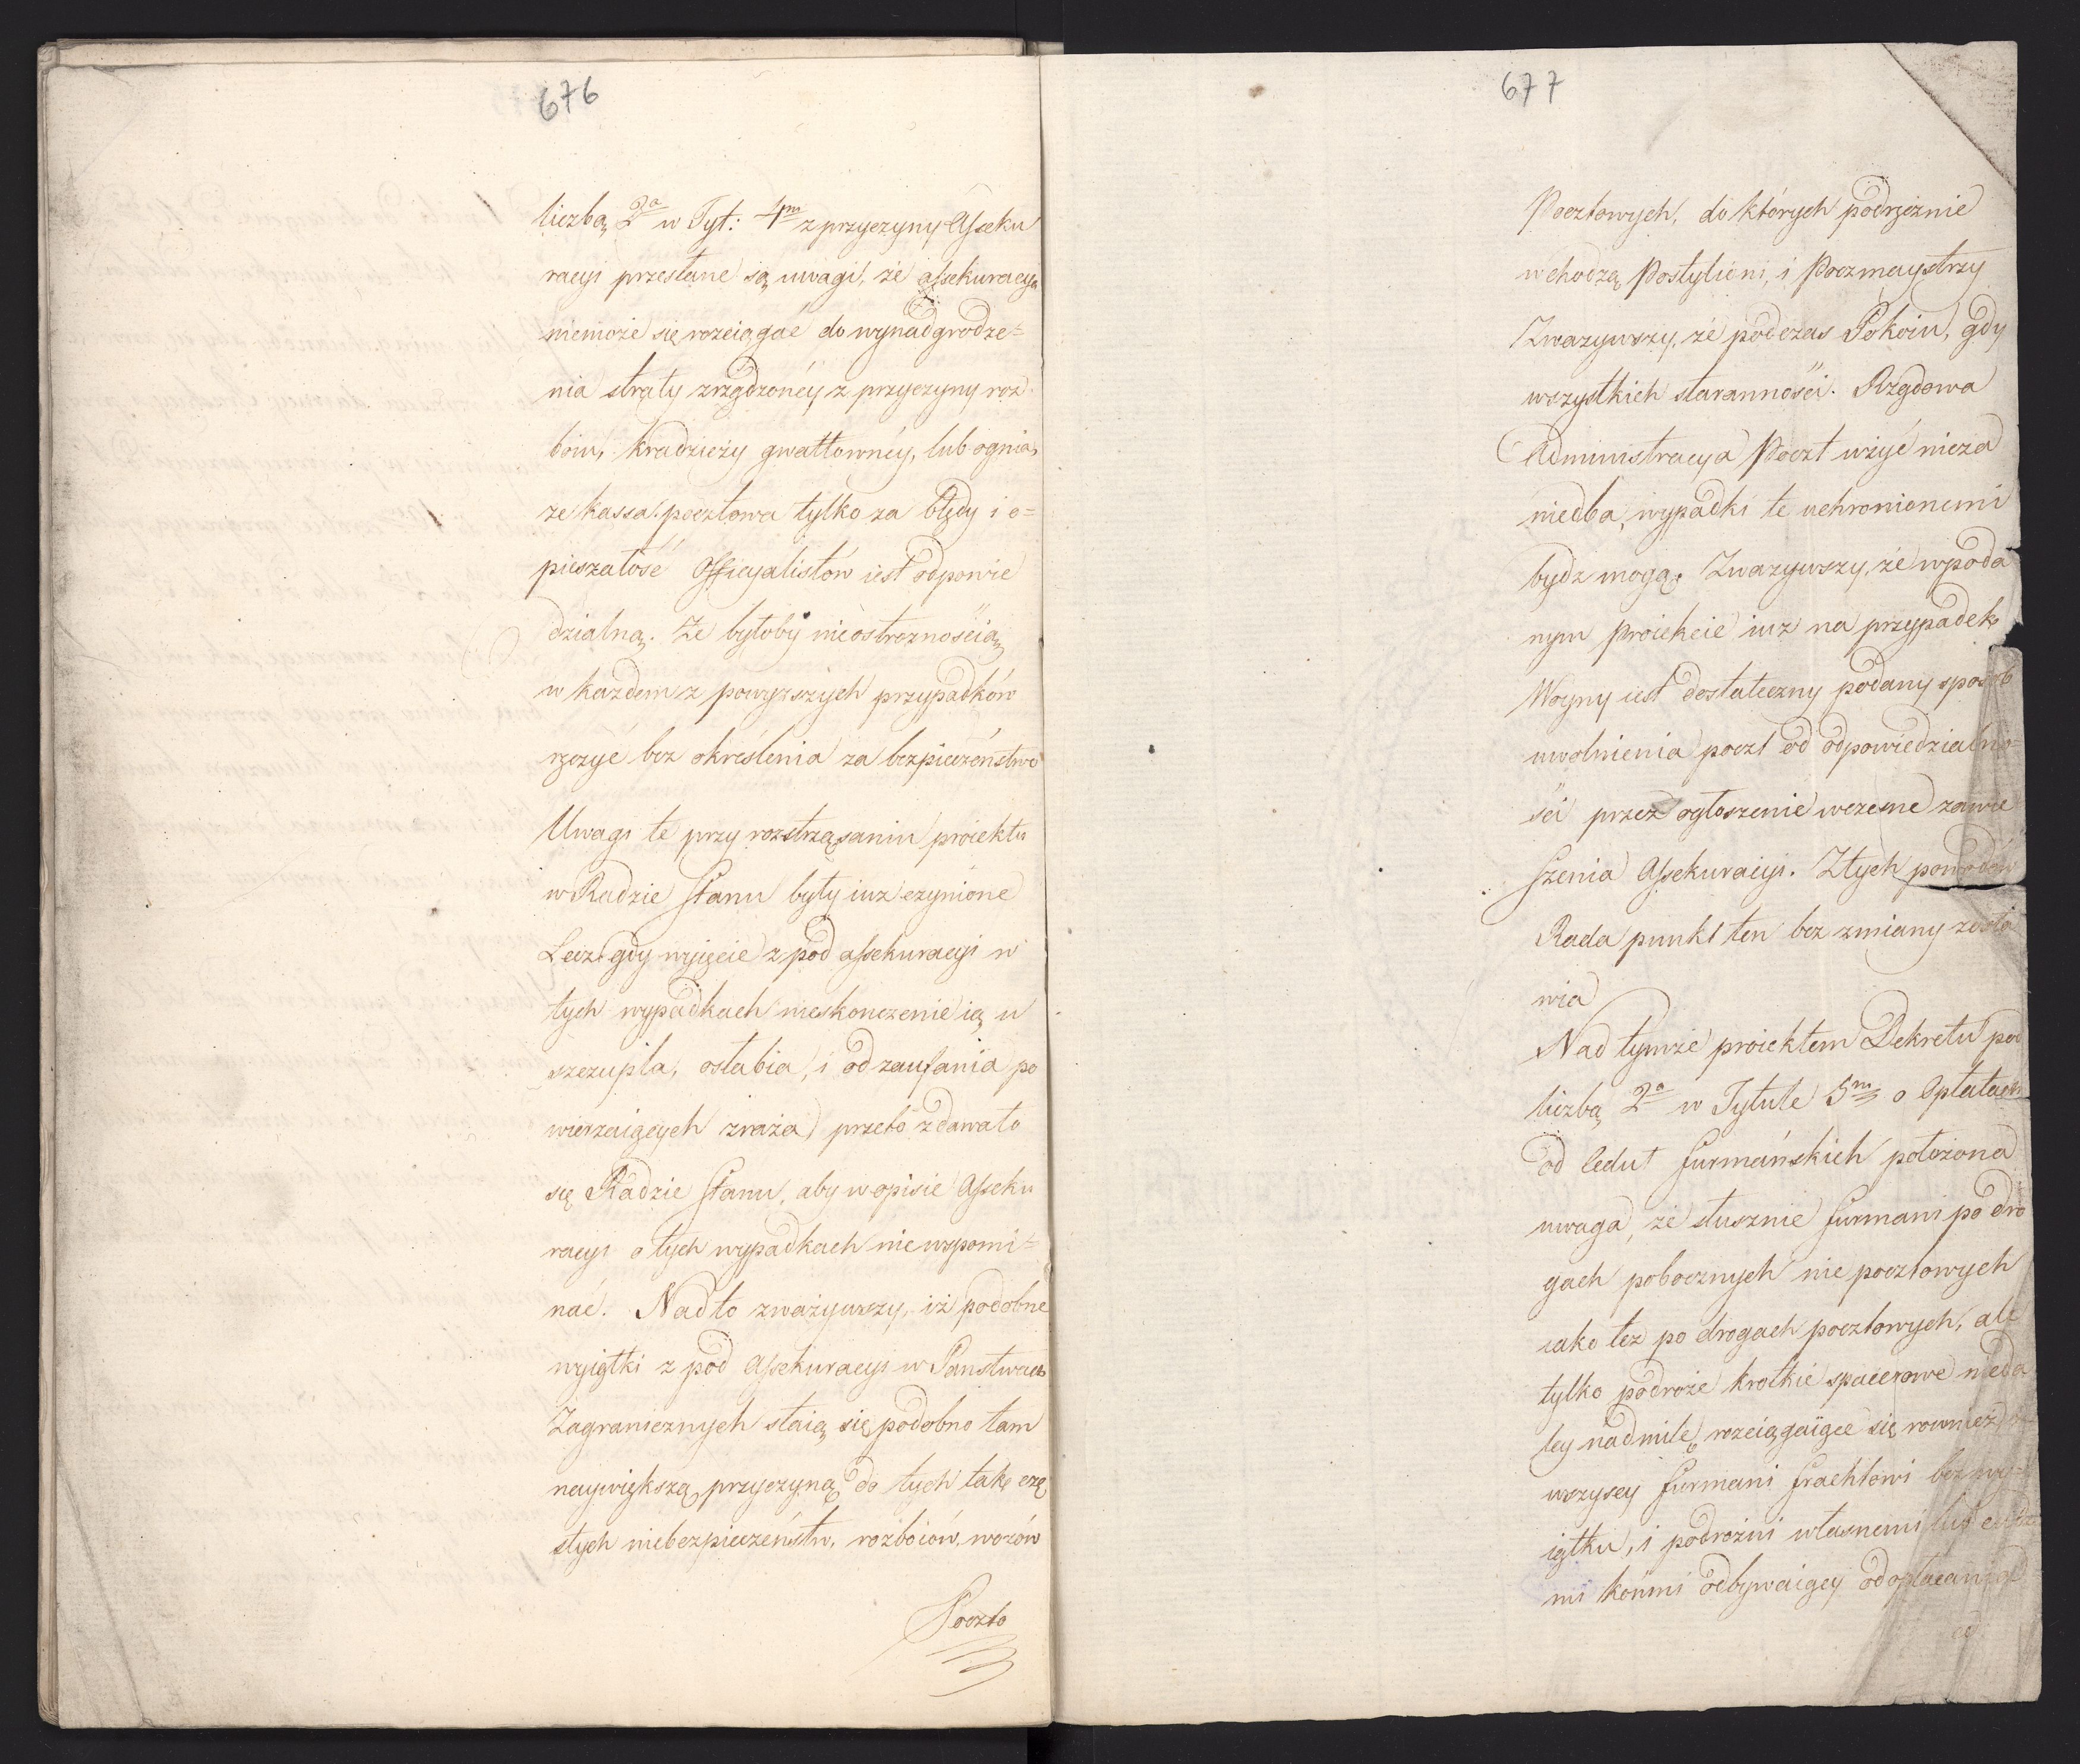 676
liczbą 2ª w Tyt: 4m z przyczyny Asseku
racyi przesłane są uwagi, że assekuracya
niemoże się rozciągać do wynadgrodze=
nia straty zrządzonéy z przyczyny roz
boiu, kradzieży gwałtownéy, lub ognia,
że kassa pocztowa tylko za błędy i o=
pieszałość Officyalistów iest odpowie
dzialną. Że byłoby nieostrożnością
w każdem z powyższych przypadków
ręczyć bez określenia za bezpieczeństwo
Uwagi te przy roztrząsaniu proiektu
w Radzie Stanu były iuż czynione
Lecz gdy wyięcie z pod assekuracyi w
tych wypadkach nieskonczenie ią u
szczupla, osłabia, i od zaufania po
wierzaiących zraża, przeto zdawało
się Radzie Stanu, aby w opisie Asseku
racyi o tych wypadkach nie wspomi=
nać. Nadto zważywszy, iż podobne
wyiątki z pod Assekuracyi w Panstwach
Zagranicznych staią się podobno tam
naywiększą przyczyną do tych tak czę
stych niebezpieczeństw, rozboiów, wozów
Poczto
677
Pocztowych, do których podrzężnie
wchodzą Postylioni, i Poczmaystrzy
Zwazywszy, że podczas Pokoiu, gdy
wszystkich staranności Rządowa
Administracya Poczt użyć nieza
niedba, wypadki te uchronionemi
bydz mogą. Zwazywszy, że w poda
nym proiekcie iuz na przypadek
Woyny iest dostateczny podany sposób
uwolnienia poczt od odpowiedzialno=
ści przez ogłoszenie wczesne zawie
szenia Assekuracyi. Ztych powodów
Rada punkt ten bez zmiany zosta
wia
Nad tymże proiektem Dekretu pod
liczbą 2ª w Tytule 5m o Opłatach
od Cedut furmańskich położona
uwaga, że słusznie furmani po dro
gach pobocznych nie pocztowych
iako też po drogach pocztowych, ale
tylko podroże krotkie spacerowe nieda
ley nad milę rozciągaiące się rownież
wszyscy furmani frachtowi bez wy=
iątku, i podrożni własnemi lub
mi końmi odbywaiący od opłacania
od